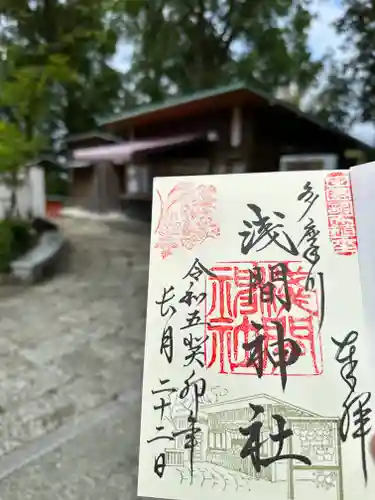 多摩川
浅間神社
奉拝
令和五癸卯年
長月二十二日
浅間神社